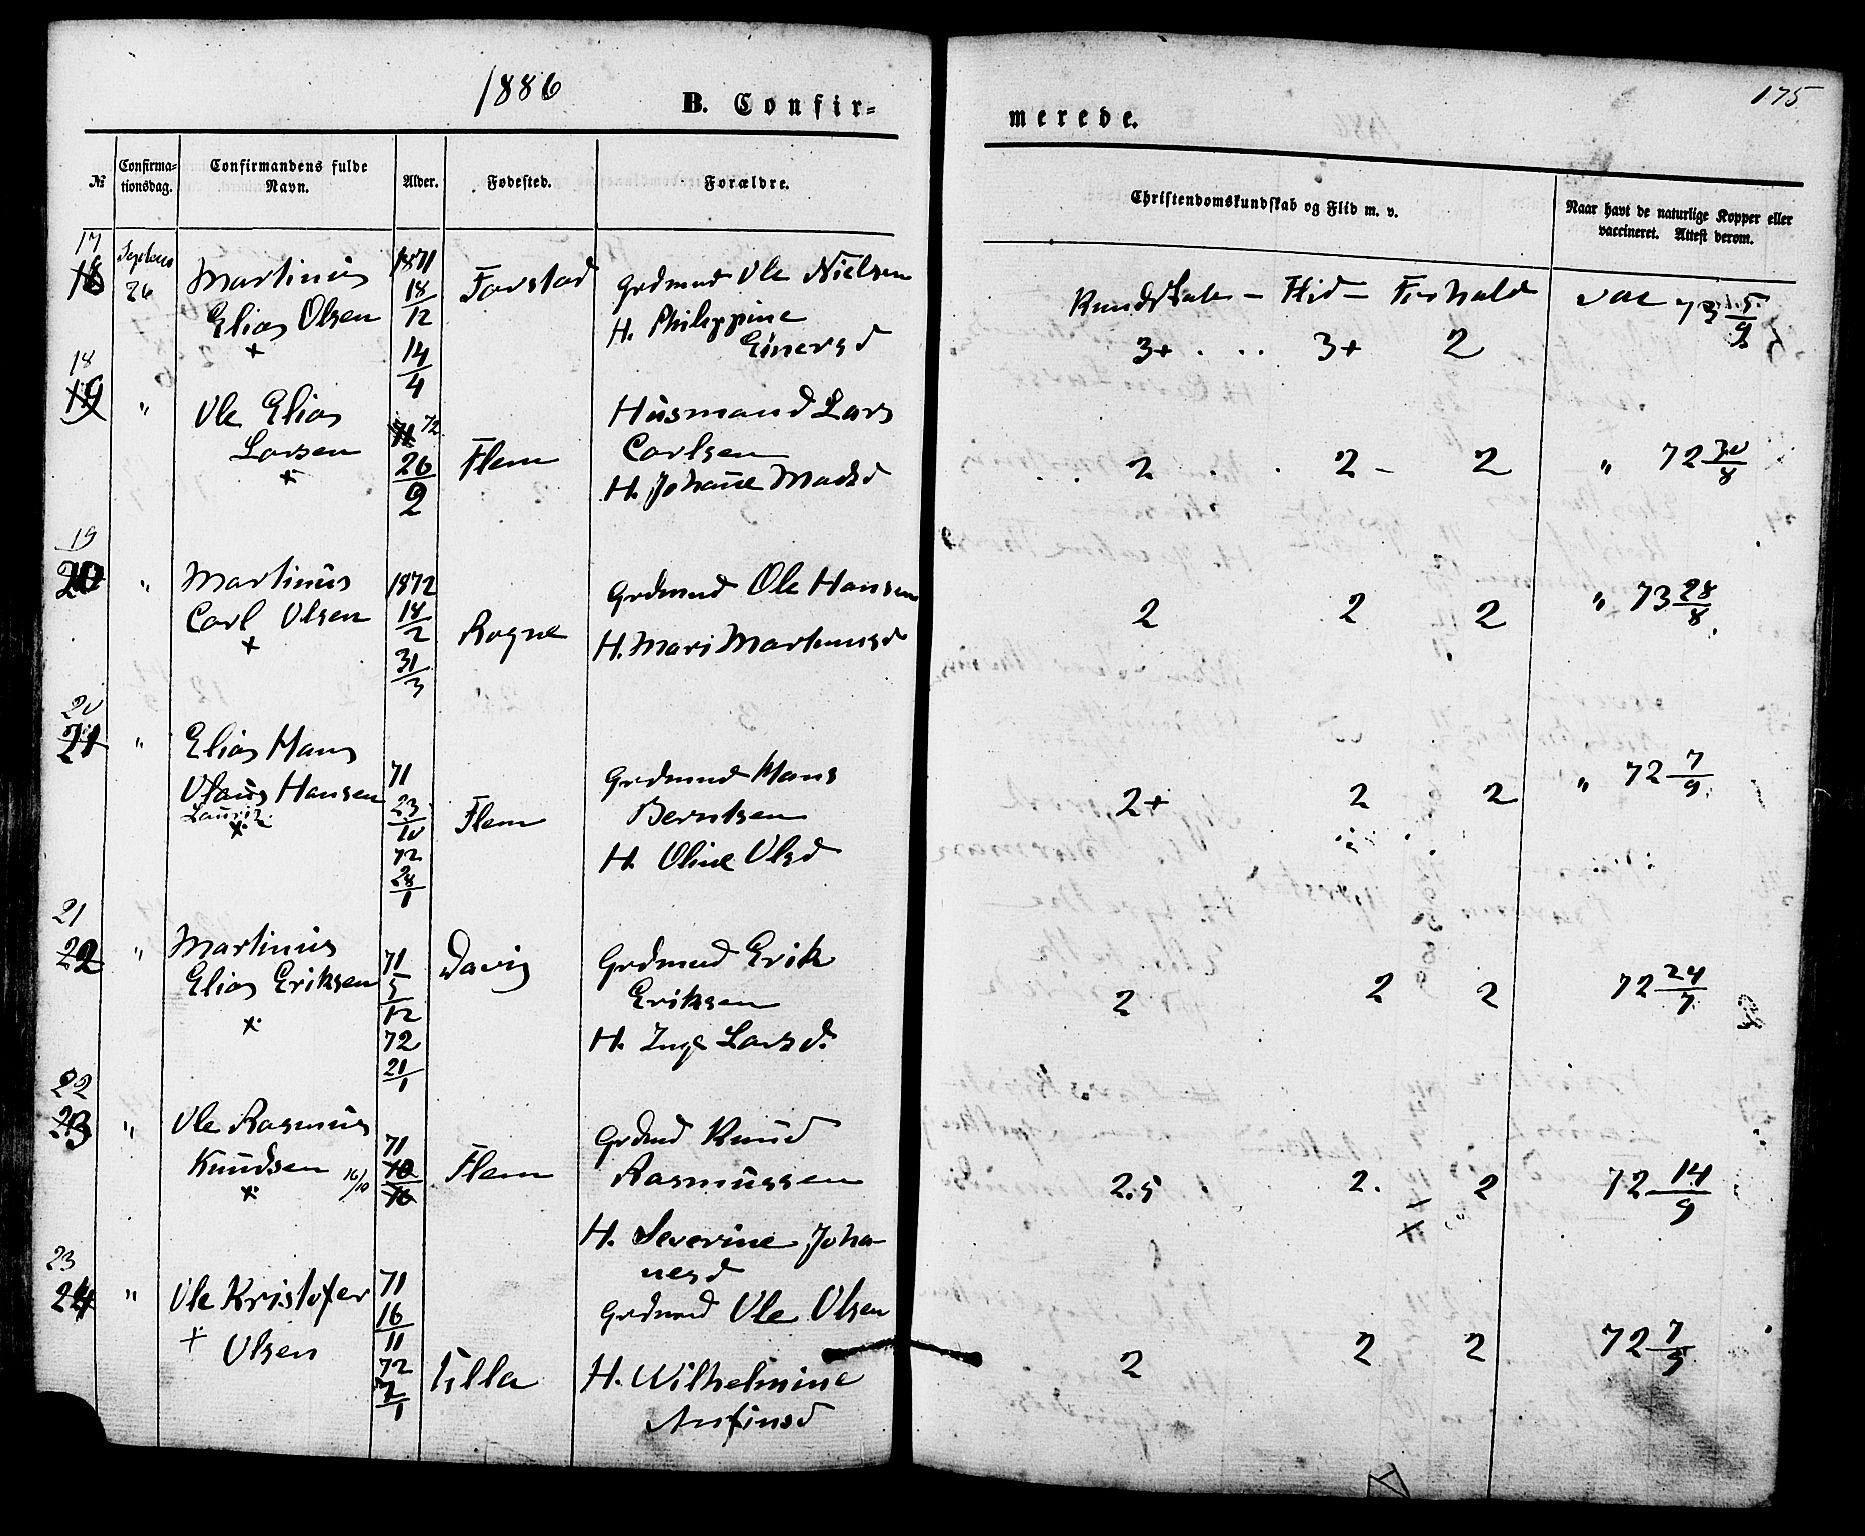 1886
B. Confir=
merede.
175
№
Confirma=
tionsdag.
Confirmandens fulde
Navn.
Alder.
Fødested.
Forældre.
Christendomskundskab og Flid m. v.
Naar havt de naturlige Kopper eller
vaccineret. Attest derom.
17
18
26
Martinus
Elias Olsen
+
1871
18/12
14/4
Farstad
Grdmand Ole Nielsen
H. Philippine
Einersd
Kundskab – Flid – Forhold
3+ . .. 3+ 2
vac 73 15/9
18
19
"
Ole Elias
Larsen
+
71 72
26/2
Flem
Husmand Lars
Carlsen
H. Johane Madsd
2 . . 2 – 2
" 72 30/8
19
20
"
Martinus
Carl Olsen
+
1872
18/2
31/3
Rogne
Grdmand Ole Hansen
H. Mari Martinusd
2 2 2
" 73 28/8
20
21
"
Elias Hans
Olaus Hansen
Lauritz
+
71
23/10
72
28/1
Flem
Grdmand Hans
Berntsen
H. Oline Olsd
2+ 2 2
" 72 7/9
21
22
"
Martinus
Elias Eriksen
+
71
5/12
72
21/1
Davig
Grdmand Erik
Eriksen
H. Inge Larsd.
2 2 2
72 24/7
22
23
"
Ole Rasmus
Knudsen 16/10
+
71
Flem
Grdmd Knud
Rasmussen
H. Severine Joha-
nesd
2.5 2. 2
72 14/9
23
24
"
Ole Kristofer
+ Olsen
71
16/11
72
7/1
Ulla
Grdmand Ole Olsen
H. Wilhelmine
Anfinsd
2 2 2
72 7/9